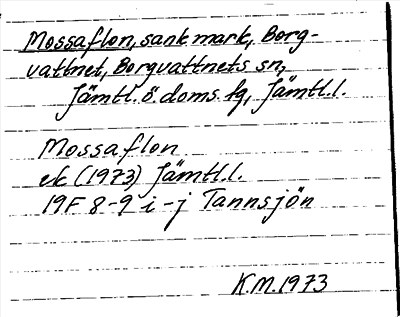 Mossaflon, sank mark, Borg-
vattnet, Borgvattnets sn,
Jämtl. ö. doms. fg, Jämtl.l.
Mossaflon
ek (1973) Jämtl.l.
19F 8-9 i-j Tannsjön
K.M. 1973